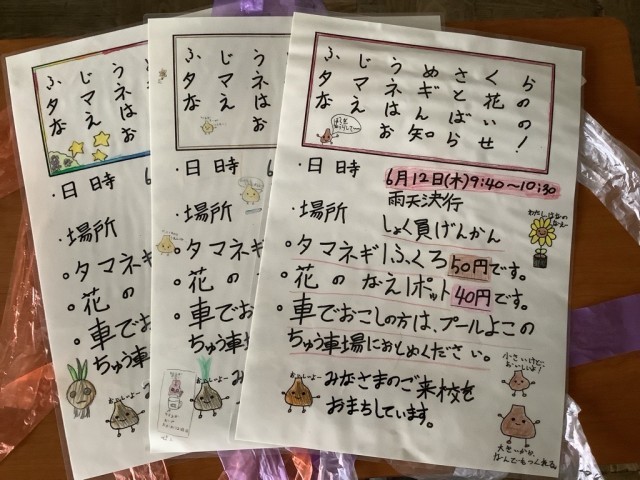 ふじうめさくら
タマネギと花の
なえはんばいの
お知らせ!
・日時 6月12日(木)9:40〜10:30
雨天決行
・場所 しょく員げんかん
・タマネギ1ふくろ50円です。
・花のなえ1ポット40円です。
・車でおこしの方は、プールよこの
ちゅう車場におとめください。
みなさまのご来校を
おまちしています。
小さいけど
おいしいよ!
ふじう
タマネ
なえは
お
・日時
・場所
・タマネギ
・花の
・車でお
ちゅう車場
ふじう
タマネ
なえは
お
・日時
・場所
・タマネギ
・花の
・車でお
ちゅう車場